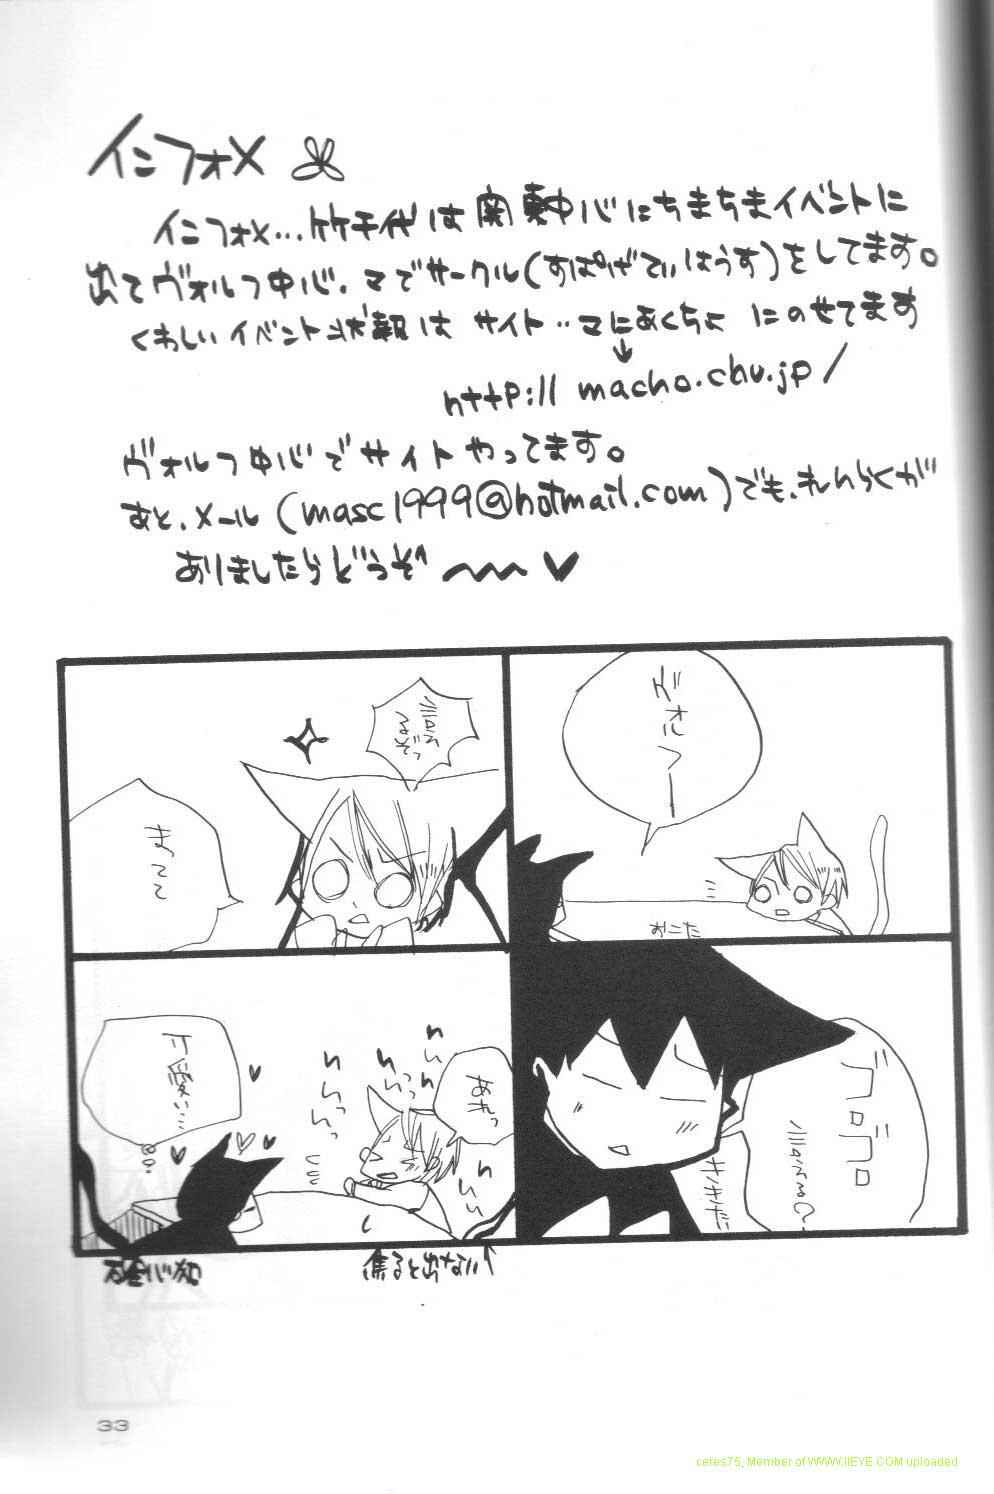 インフォメ
インフォメ…竹千代は関東中心にちまちまイベントに
出てヴォルフ中心、マでサークル(すぱげてぃはうす)をしてます。
くわしいイベント状報は サイト‥マにあくちよ にのせてます
↓
http://macho.chu.jp/
ヴォルフ中心でサイトやってます。
あと、メール(masc1999@hotmail.com)でも、れんらくが
ありましたらどうぞ〜〜♥
ヴォルフー
おこた
ゴロゴロ
あれっ
焦ると出ない↑
可愛い…
33
celes75, Member of WWW.IIEYE.COM uploaded